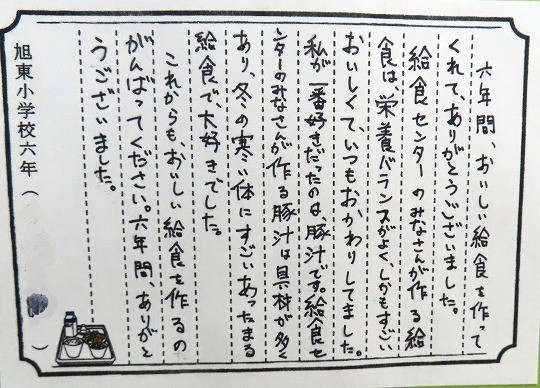 六年間、おいしい給食を作って
くれて、ありがとうございました。
給食センターのみなさんが作る給
食は、栄養バランスがよく、しかもすごい
おいしくて、いつもおかわりしてました。
私が一番好きだったのは、豚汁です。給食セ
ンターのみなさんが作る豚汁は具材が多く
あり、冬の寒い体にすごいあったまる
給食で、大好きでした。
これからも、おいしい給食を作るの
がんばってください。六年間、ありがと
うございました。
旭東小学校六年（　）